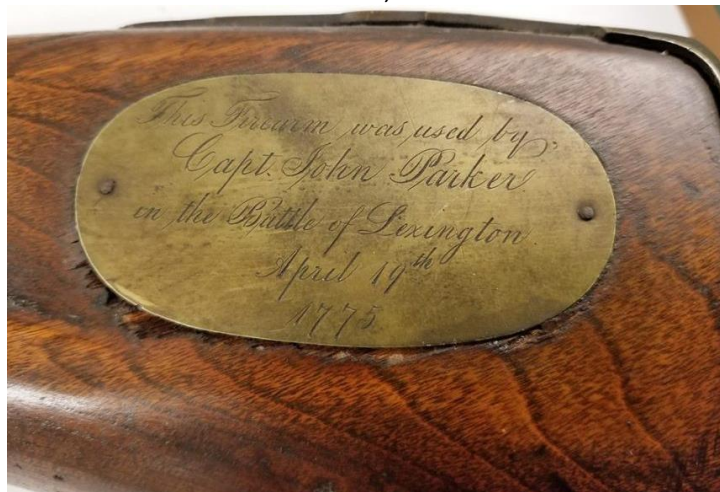 This Firearm was used by
Capt. John Parker
in the Battle of Lexington
April 19th
1775